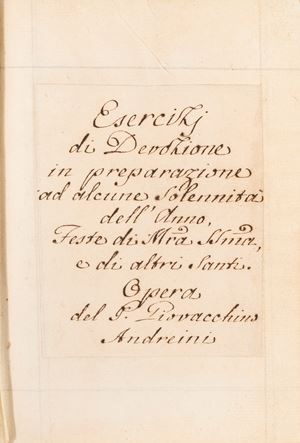 Esercizj
di Devozione
in preparazione
ad alcune Solennità
dell'Anno,
Feste di Mra SSma,
e di altri Santi.
Opera
del P. Giovacchino
Andreini